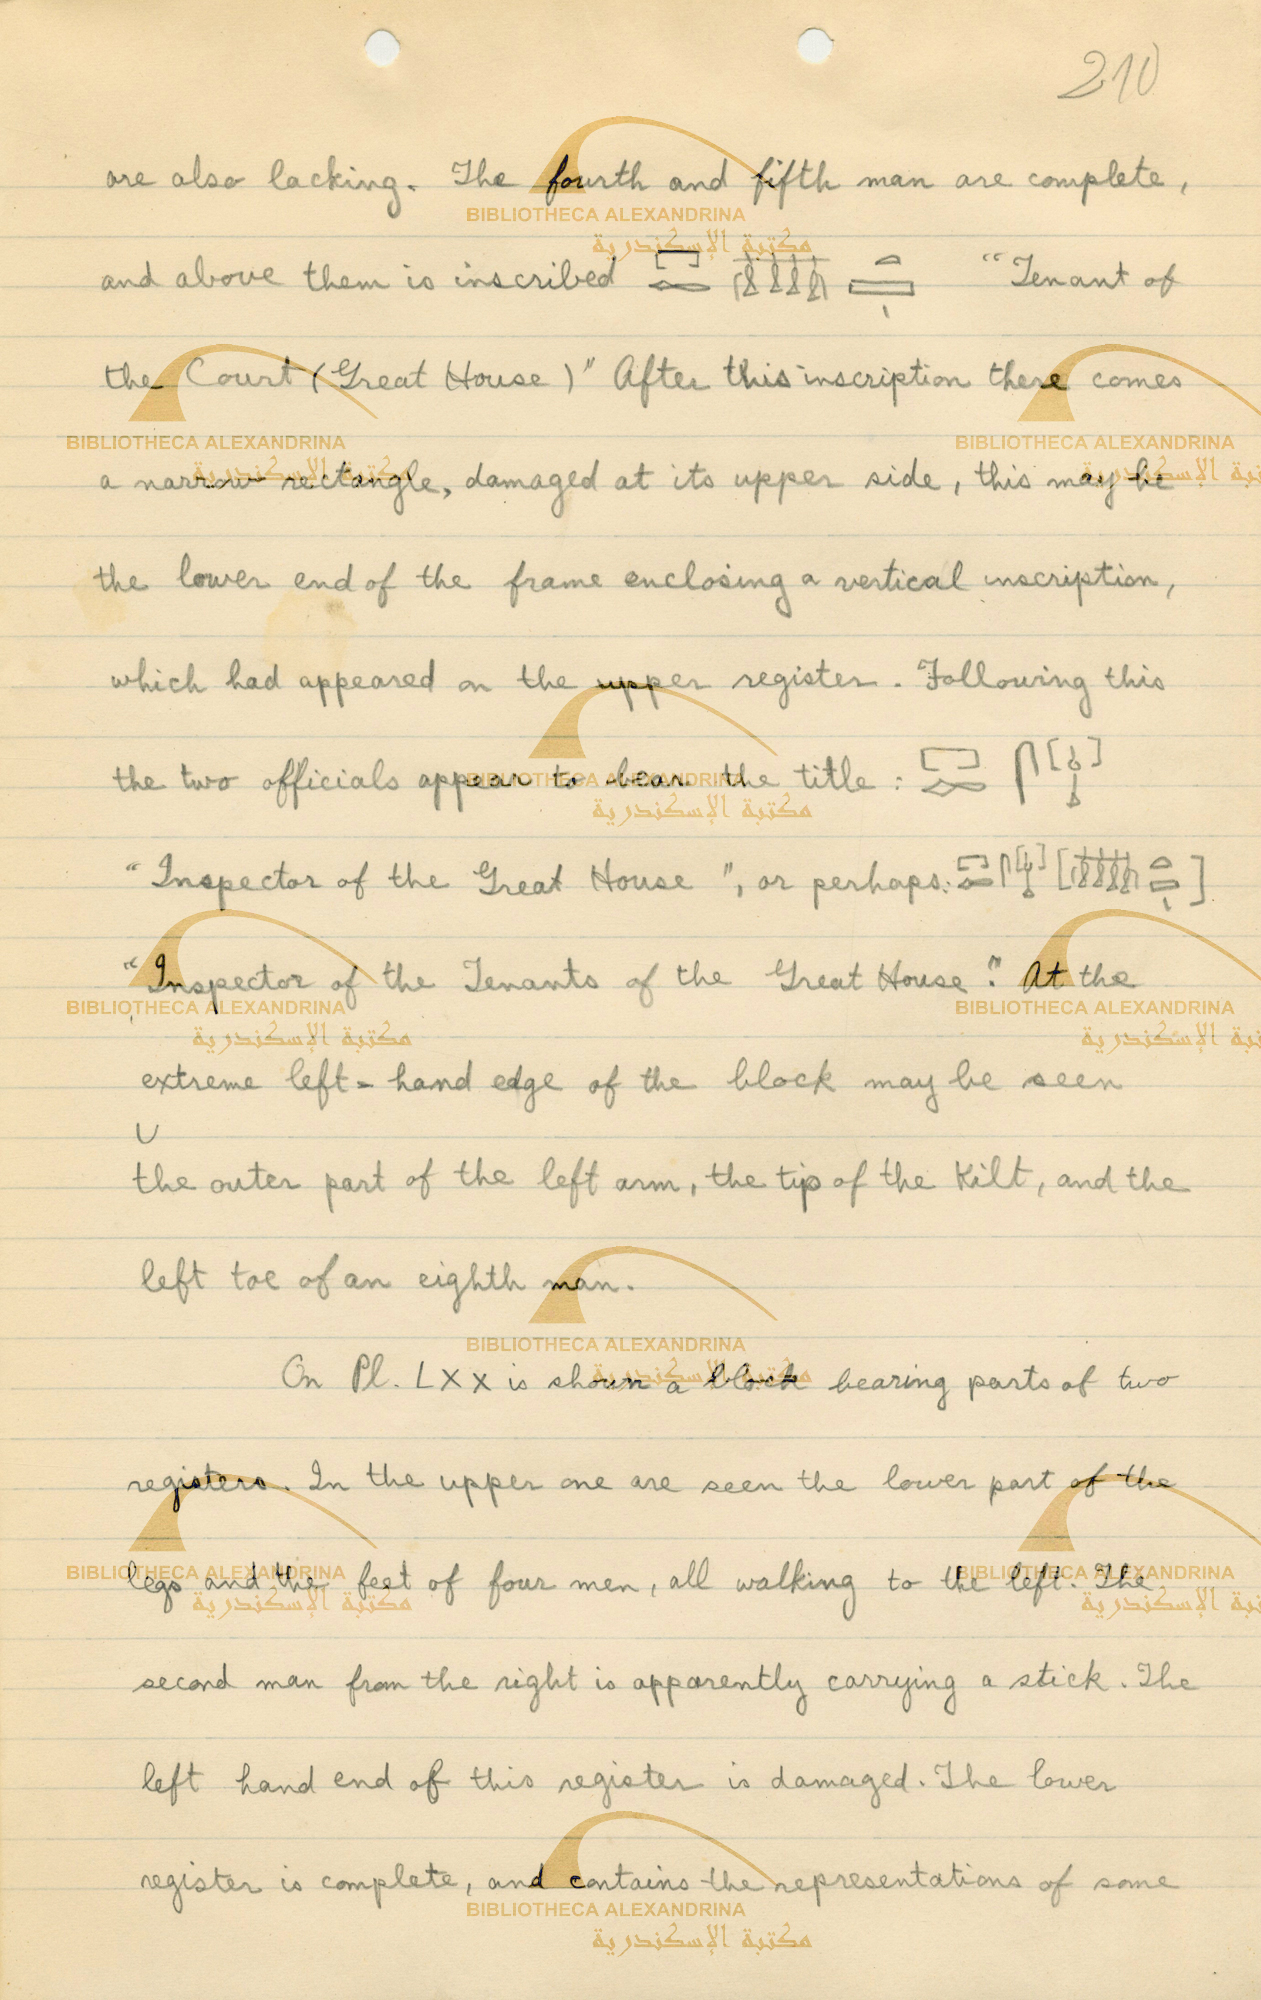 210
are also lacking. The fourth and fifth man are complete,
and above them is inscribed “Tenant of
the Court (Great House)” After this inscription there comes
a narrow rectangle, damaged at its upper side, this may be
the lower end of the frame enclosing a vertical inscription,
which had appeared on the upper register. Following this
the two officials appear to bear the title :
“Inspector of the Great House”, or perhaps:
“Inspector of the Tenants of the Great House”. At the
extreme left-hand edge of the block may be seen
the outer part of the left arm, the tip of the Kilt, and the
left toe of an eighth man.
On Pl. LXX is shown a block bearing parts of two
registers. In the upper one are seen the lower part of the
legs and the feet of four men, all walking to the left. The
second man from the right is apparently carrying a stick. The
left hand end of this register is damaged. The lower
register is complete, and contains the representations of some
BIBLIOTHECA ALEXANDRINA
مكتبة الإسكندرية